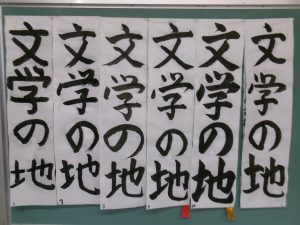 文学の地
文学の地
文学の地
文学の地
文学の地
文学の地